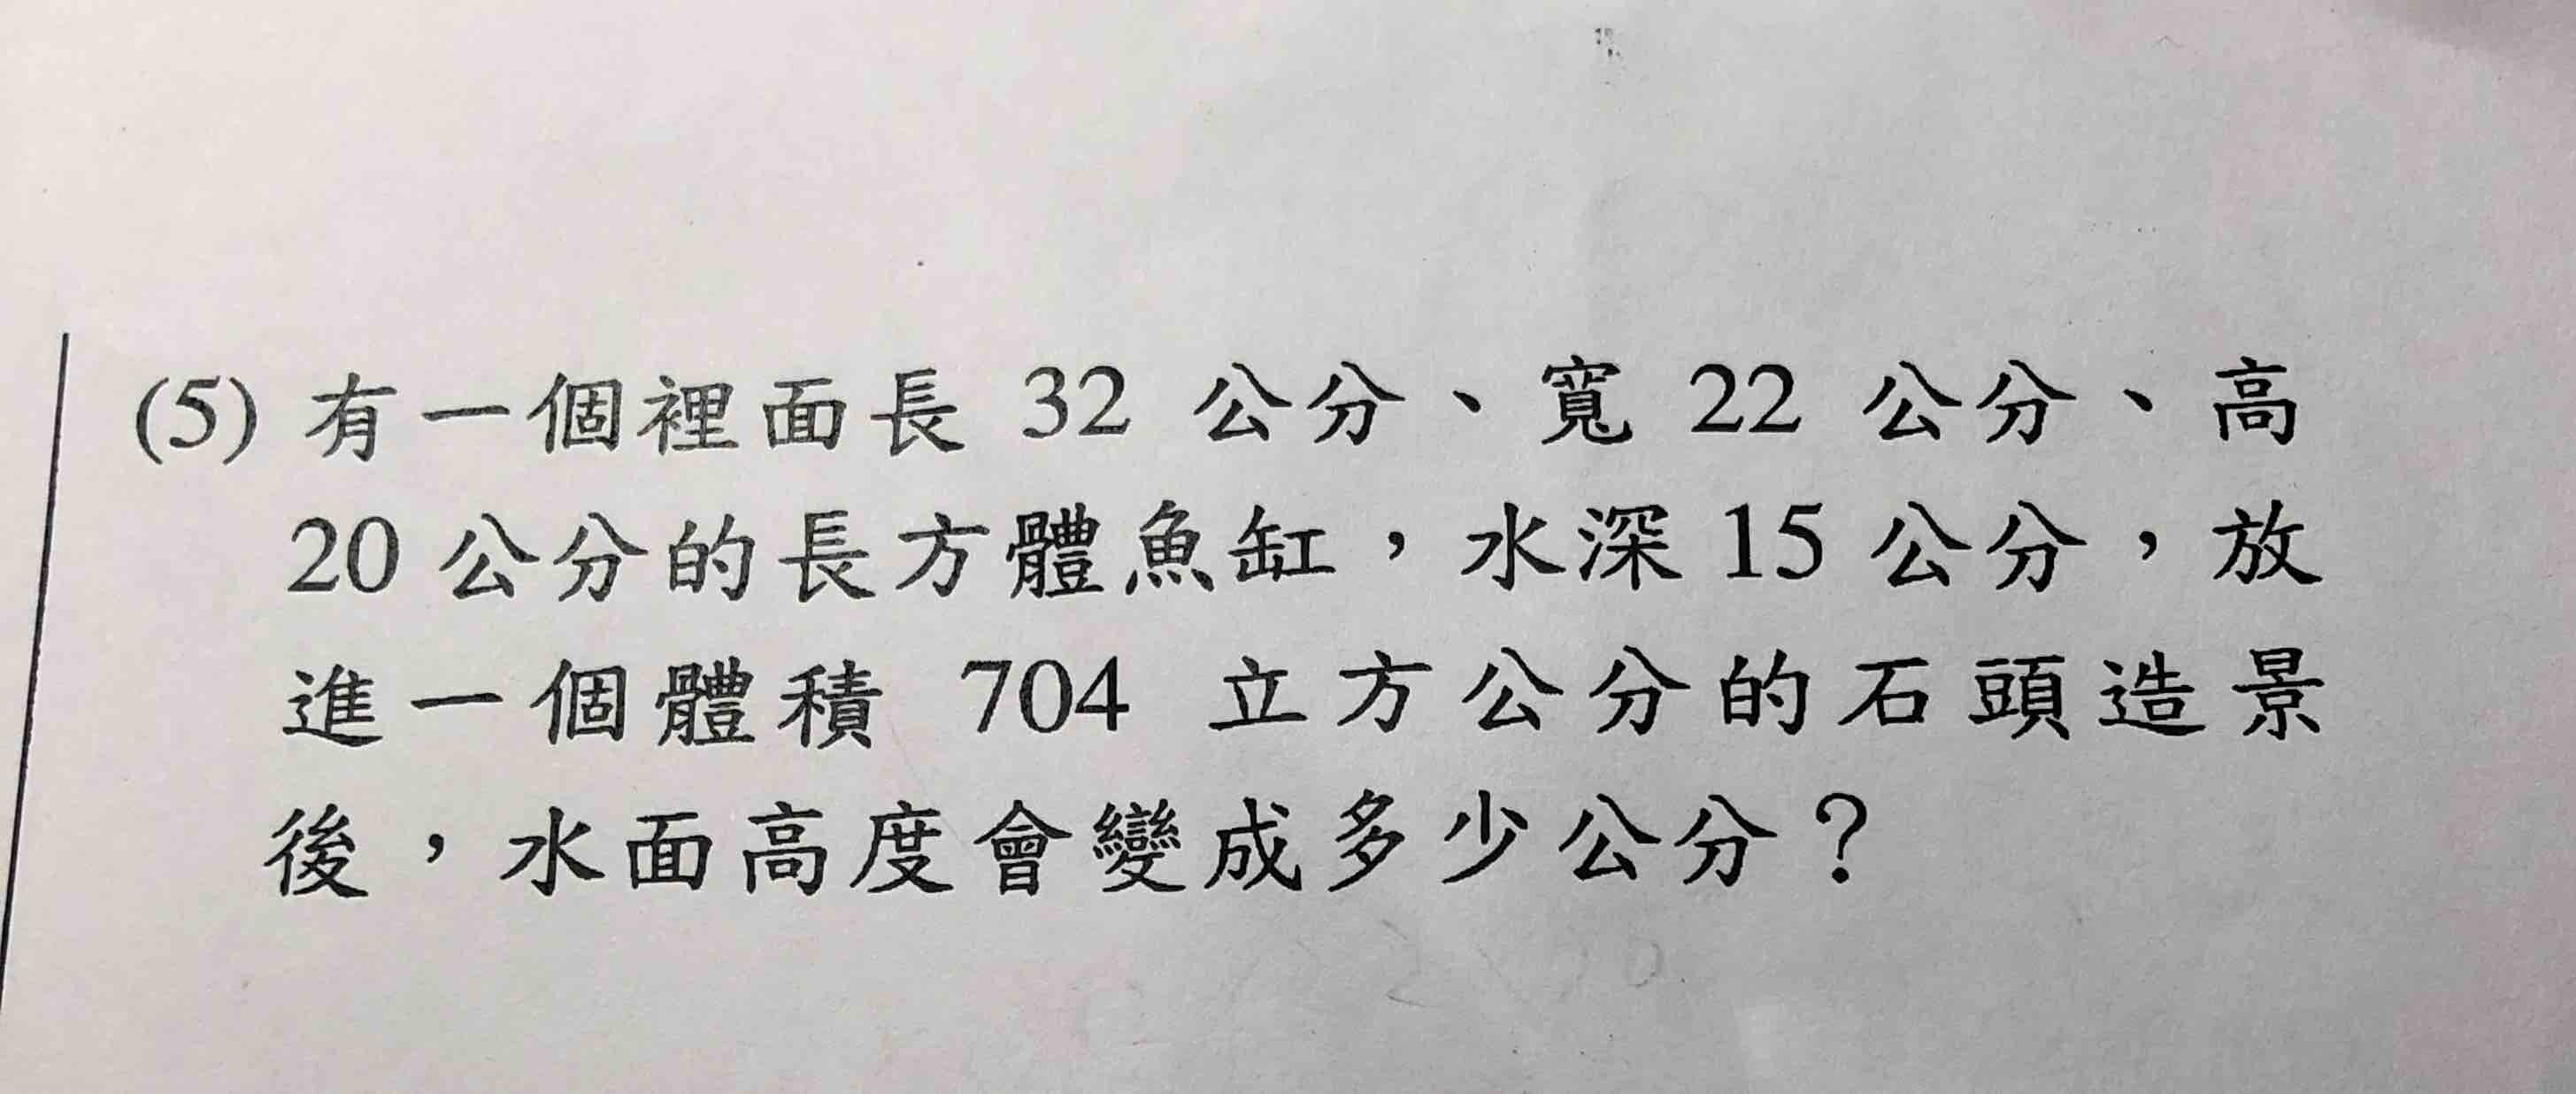 (5) 有一個裡面長 32 公分、寬 22 公分、高
20 公分的長方體魚缸，水深 15 公分，放
進一個體積 704 立方公分的石頭造景
後，水面高度會變成多少公分？